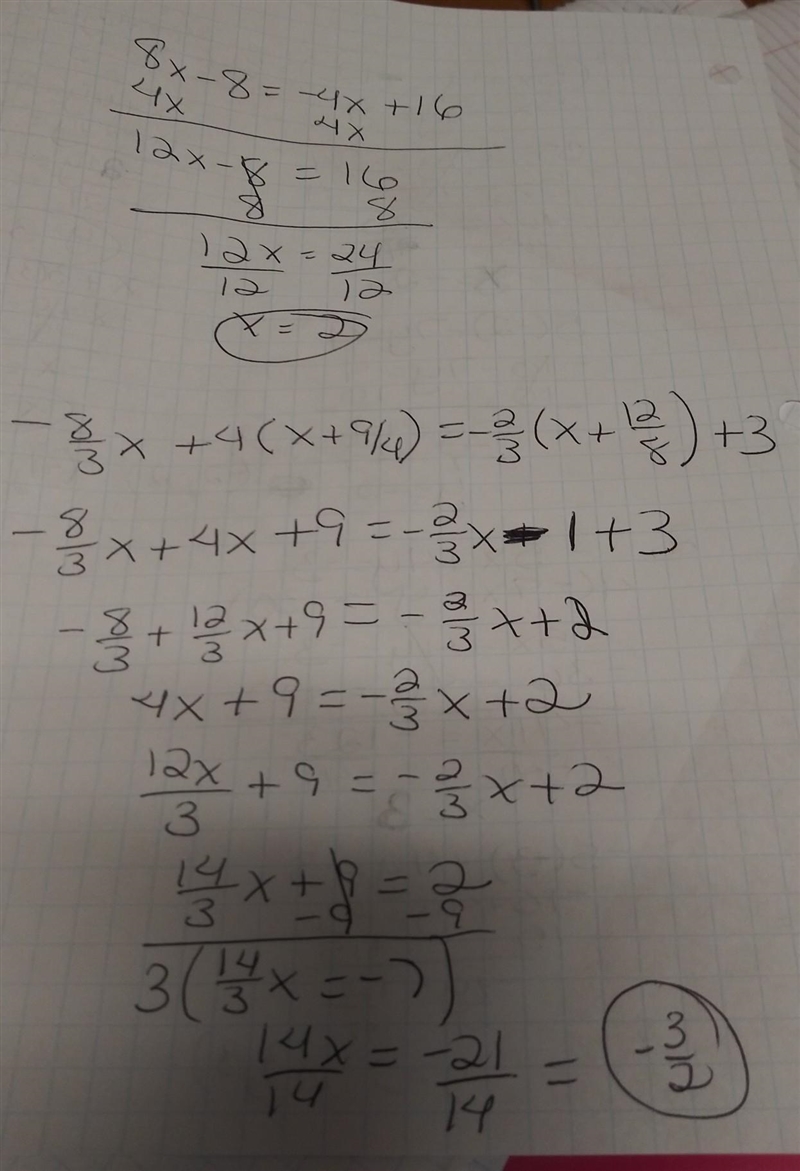 8x - 8 = -4x + 16
4x 4x
12x - 8 = 16
8 8
12x/12 = 24/12
x = 2
- 8/3 x + 4(x + 9/4) = - 2/3 (x + 12/8) + 3
- 8/3 x + 4x + 9 = - 2/3 x - 1 + 3
- 8/3 + 12/3 x + 9 = - 2/3 x + 2
4x + 9 = - 2/3 x + 2
12x/3 + 9 = - 2/3 x + 2
14/3 x + 9 = 2
-9 -9
3(14/3 x = -7)
14x/14 = -21/14 = - 3/2